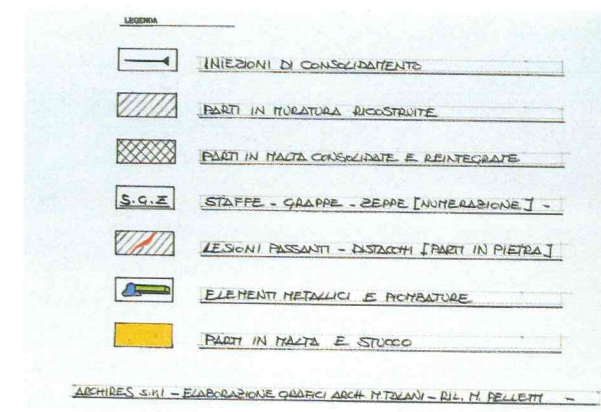 LEGENDA
INIEZIONI DI CONSOLIDAMENTO
PARTI IN MURATURA RICOSTRUITE
PARTI IN MALTA CONSOLIDATE E REINTEGRATE
S.G.Z STAFFE - GRAPPE - ZEPPE [NUMERAZIONE] -
LESIONI PASSANTI - DISTACCHI [PARTI IN PIETRA]
ELEMENTI METALLICI E PIOMBATURE
PARTI IN MALTA E STUCCO
ARCHIRES s.r.l - ELABORAZIONE GRAFICI ARCH. M. TALANI - RIL. M. PELLETTI -